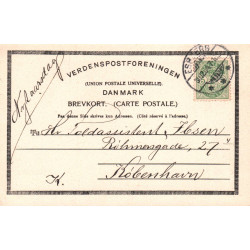 VERDENSPOSTFORENINGEN
(UNION POSTALE UNIVERSELLE)
DANMARK
BREVKORT. (CARTE POSTALE.)
Paa denne Side skrives kun Adressen. (Côté réservé à l'adresse.)
Nytaarsdag
Til Hr Toldassistent Ibsen
Römersgade 27
København
K.
ESBJERG